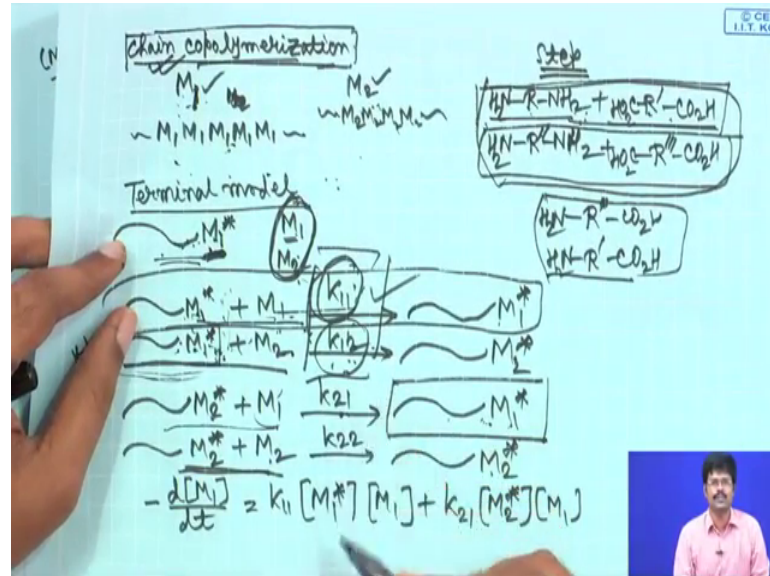 © CE
I.I.T. K
Chain copolymerization
M1 M2
~ M1 M1 M1 M1 M1 ~
Step
H2N-R-NH2 + HO2C-R'-CO2H
H2N-R''-NH2 + HO2C-R'''-CO2H
H2N-R''-CO2H
H2N-R'-CO2H
Terminal model
M1*
M1
~ M1* + M1 k11 → ~ M1*
~ M1* + M2 k12 → ~ M2*
~ M2* + M1 k21 → ~ M1*
~ M2* + M2 k22 → ~ M2*
- d[M1]/dt = k11 [M1*] [M1] + k21 [M2*] [M1]